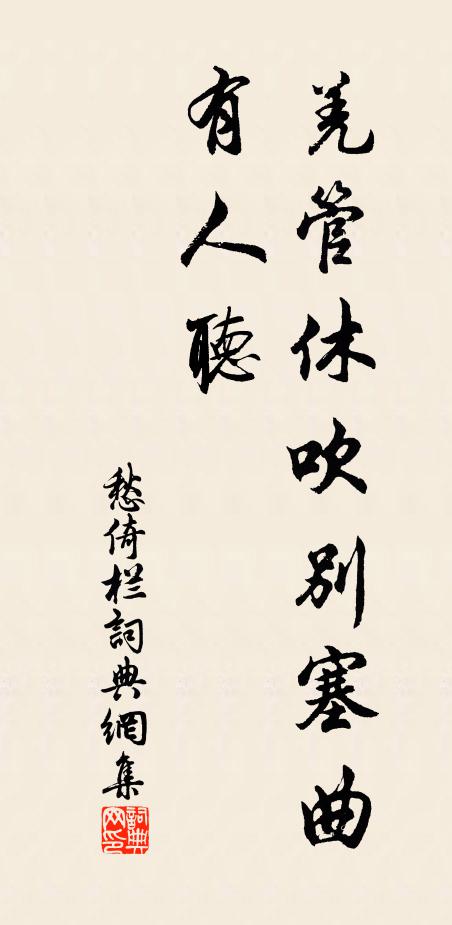 羌管休吹別塞曲
有人聽
愁倚栏詞典網集
詞典
网印